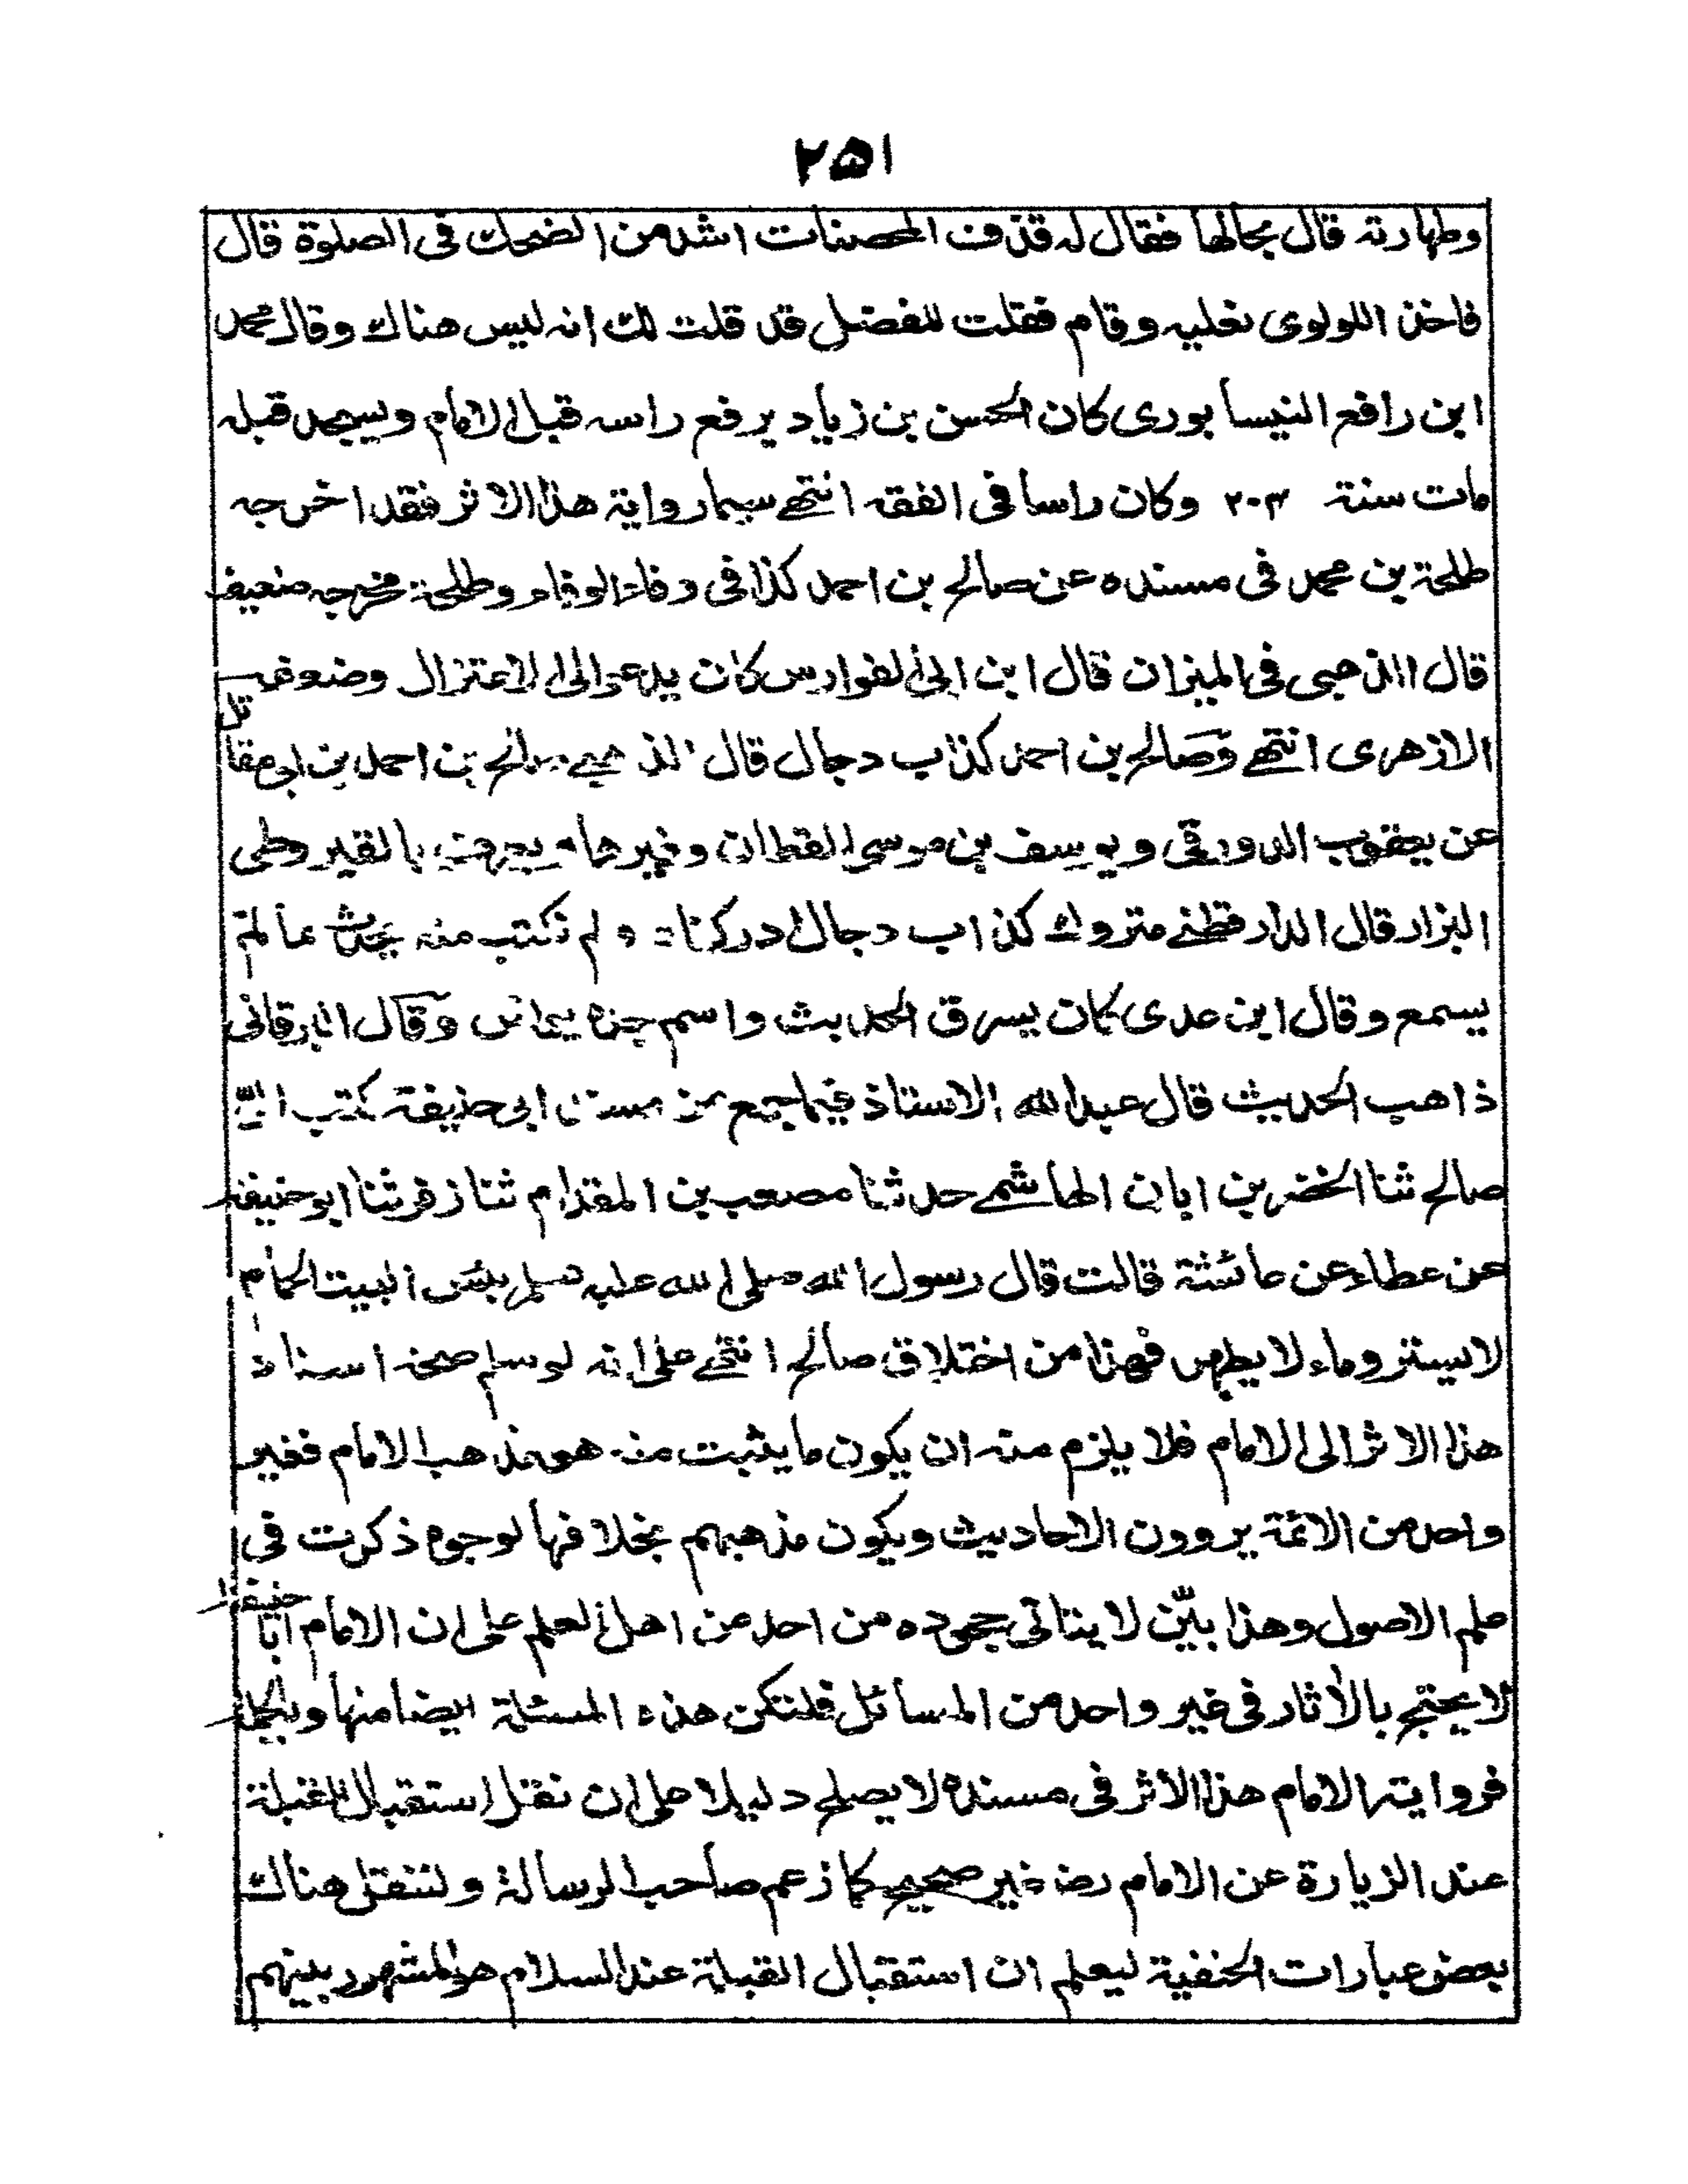 ٢٥١
وطهارته قال بحالها فقال له قذف المحصنات اشد من الضحك فى الصلوة قال
فاخذ اللولوى نعليه وقام فقلت للفضل قد قلت لك انه ليس هناك وقال محمد
ابن رافع النيسابورى كان الحسن بن زياد يرفع راسه قبل الامام ويسجد قبله
مات سنة ٢٠٣ وكان راسا فى الفقه انتهے سيما رواية هذا الاثر فقد اخرجه
طلحة بن محمد فى مسنده عن صالح بن احمد كذا فى وفاء الوفاء وطلحة مخرجه ضعيف
قال الذهبى فى الميزان قال ابن ابى الفوارس كان يدعو الى الاعتزال وضعفه
الازهرى انتهے وصالح بن احمد كذاب دجال قال الذهبے صالح بن احمد بن ابى مقاتل
عن يعقوب الدورقى ويوسف بن موسى القطان وغيرهما ويعرف بالقيروطى
البزار قال الدارقطنے متروك كذاب دجال ادركناه ولم نكتب منه يحدث عمالم
يسمع وقال ابن عدى كان يسرق الحديث واسم جده يونس وقال البرقانى
ذاهب الحديث قال عبدالله الاستاذ فيما جمع من مسند ابى حنيفة كتب الىّ
صالح ثنا الخضر بن ابان الهاشمے حدثنا مصعب بن المقدام ثنا زفر ثنا ابو حنيفة
عن عطاء عن عائشة قالت قال رسول الله صلى الله عليه وسلم بئس البيت الحمام
لا يستر وماء لا يطهر فهذا من اختلاق صالح انتهے على انه لو سلم صحة اسناد
هذا الاثر الى الامام فلا يلزم منه ان يكون ما يثبت منه هو مذهب الامام فغير
واحد من الائمة يروون الاحاديث ويكون مذهبهم بخلافها لوجوه ذكرت فى
علم الاصول وهذا بيّن لا يتاتى جحوده من احد من اهل العلم على ان الامام ابا حنيفة
لا يحتج بالأثار فى غير واحد من المسائل فلتكن هذه المسئلة ايضا منها وبالجملة
فرواية الامام هذا الأثر فى مسنده لا يصلح دليلا على ان نقل استقبال القبلة
عند الزيارة عن الامام رضـ غير صحيح كما زعم صاحب الرسالة ولننقل هناك
بعض عبارات الحنفية ليعلم ان استقبال القبلة عند السلام هو المشهور بينهم